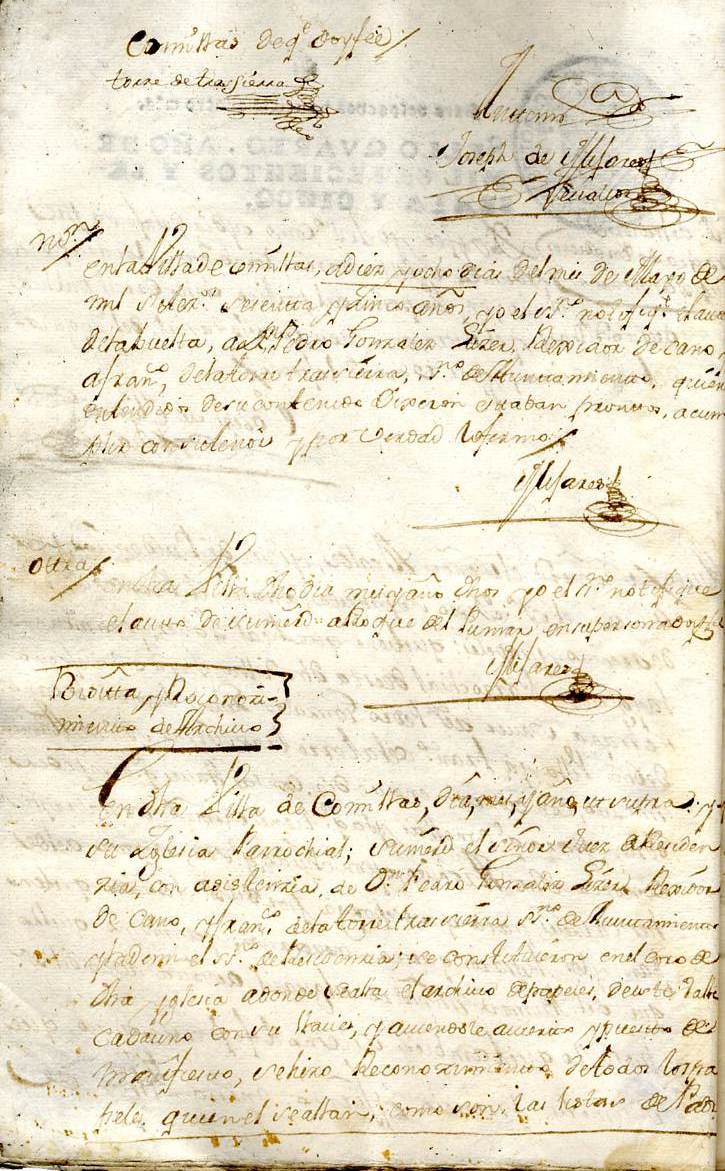 Comillas de qe. doy fee /
torre de tra sierra
Antte mi
Joseph de Mijares
Vevallos
Non.
en la Villa de Comillas, a diez y ocho dias del mes de Mayo de
mil setezs. sesenta y cinco años, yo el Sno. notofiqe. el auto
de la buelta, a Dn. Pedro Gonzalez Rexidor de cano,
a franco. de la torre tra sierra, Sno. de Aiuntamiento, quien
entendidos de su contenido Dixeron estaban promtos, a cum
plir con su tenor y por Verdad lo firmo /
Mijares
Ottra /
en dha Villa dho dia mes y año dhos yo el Sno. notofique
el auto de su merd. a Roque del Pumar en su persona doy fee
Mijares
Vicitta, y Reconozi-
miento de Archivo
en dha Villa de Comillas, dia, mes, y año, ut supra
su Yglesia Parrochial; su merd. el señor Juez de Residen
zia, con asistenzia, de Dn. Pedro Gonzalez Rexidor
de Cano, y franco. de la torre tra sierra Sno. de Aiuntamiento
y ademi el Sno. de Residenzia; se constituieron en el coro de
dha yglesia adonde se alla el archivo de papeles,
cada uno con su llave, y aviendole avierto y puesto de
manifiesto, se hizo Reconozimiento de todos los pa
peles que en el se allan, como son, las de